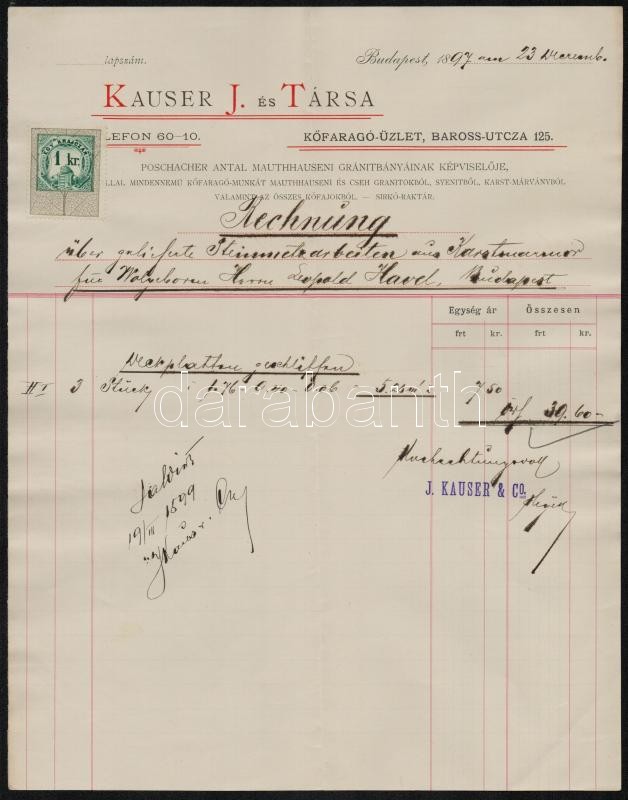 lapszám.
Budapest, 1897 am 23 Decemb.
KAUSER J. ÉS TÁRSA
LEFON 60-10.
KŐFARAGÓ-ÜZLET, BAROSS-UTCZA 125.
1 kr.
POSCHACHER ANTAL MAUTHHAUSENI GRÁNITBÁNYÁINAK KÉPVISELŐJE,
LLAL MINDENNEMŰ KŐFARAGÓ-MUNKÁT MAUTHHAUSENI ÉS CSEH GRANITOKBÓL, SYENITBŐL, KARST-MÁRVÁNYBÓL
VALAMINT AZ ÖSSZES KŐFAJOKBÓL. — SIRKŐ-RAKTÁR.
Rechnung
über gelieferte Steinmetzarbeiten aus Karstmarmor
für Wolgeboren Herrn Leopold Havel, Budapest
Egység ár Összesen
frt kr. frt kr.
Deckplatten geschliffen
3 Stück 7 50
darabanth
39.60
Hochachtungsvoll
J. KAUSER & Co.
19/III 1899